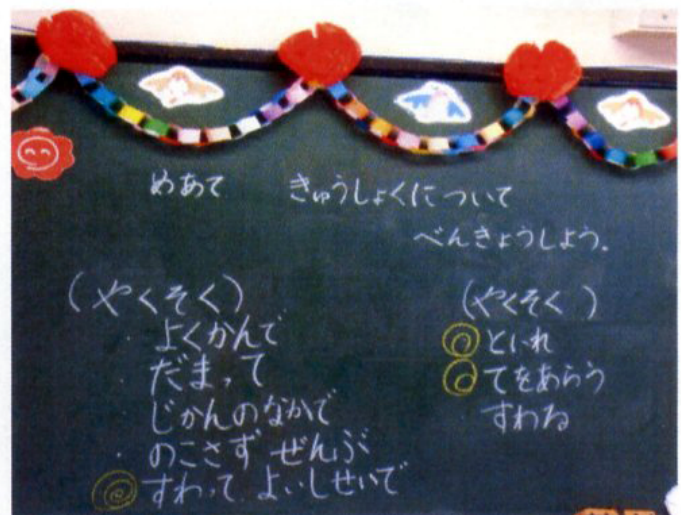 めあて きゅうしょくについて
べんきょうしよう。
(やくそく)
・よくかんで
だまって
じかんのなかで
・のこさず ぜんぶ
すわって よいしせいで
(やくそく)
といれ
てをあらう
すわる